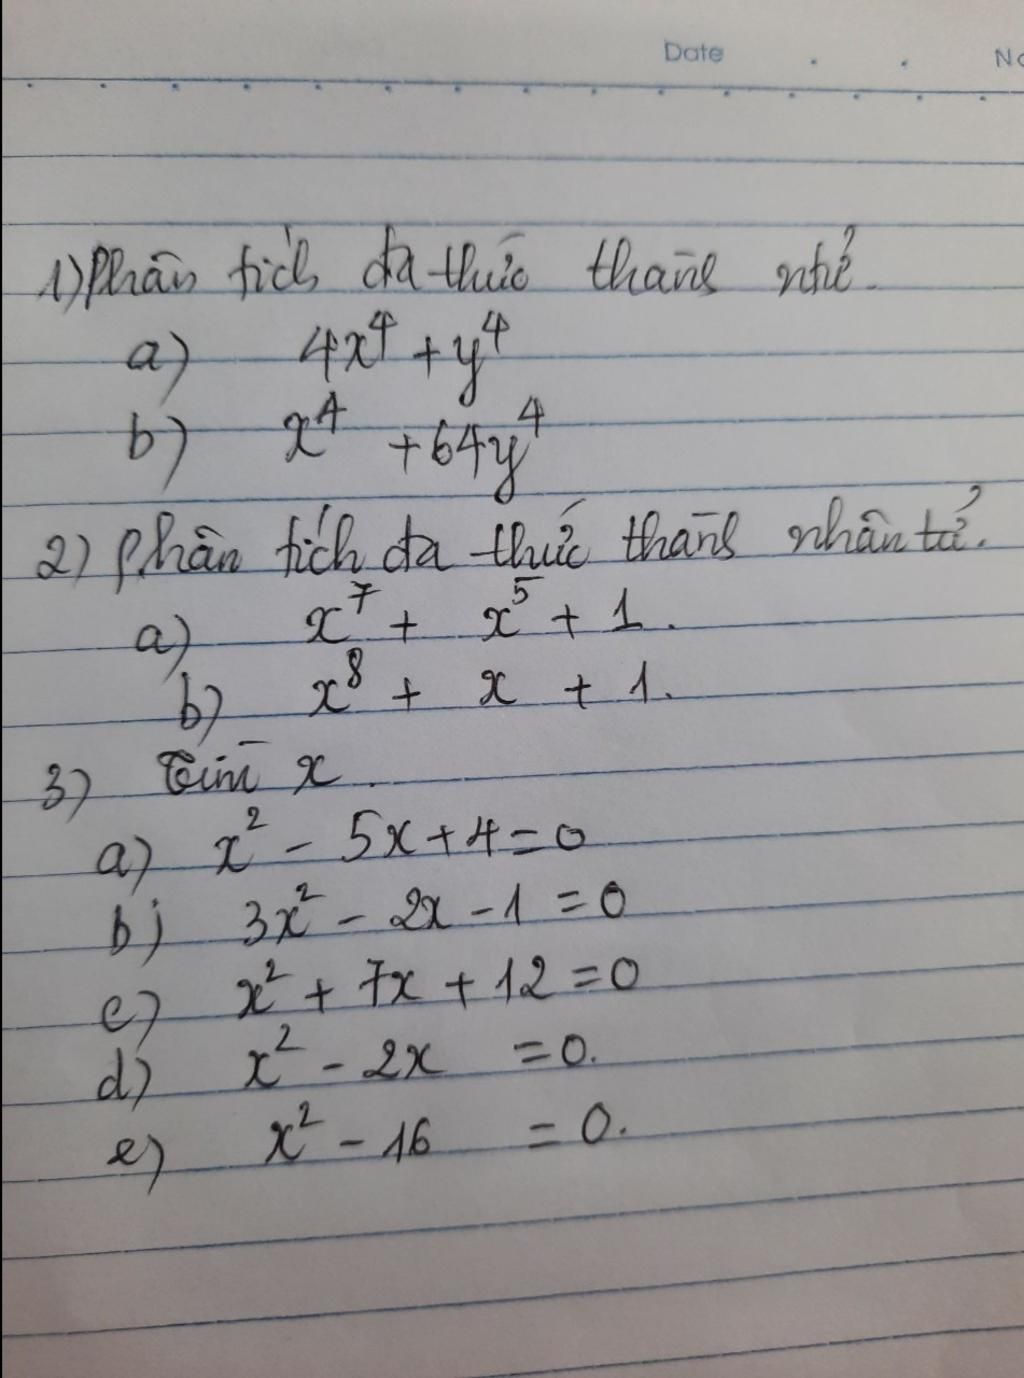 Date No
1) Phân tích đa thức thành ntử.
a) 4x⁴ + y⁴
b) x⁴ + 64y⁴
2) Phân tích đa thức thành nhân tử.
a) x⁷ + x⁵ + 1.
b) x⁸ + x + 1.
3) Tìm x.
a) x² - 5x + 4 = 0
b) 3x² - 2x - 1 = 0
c) x² + 7x + 12 = 0
d) x² - 2x = 0.
e) x² - 16 = 0.